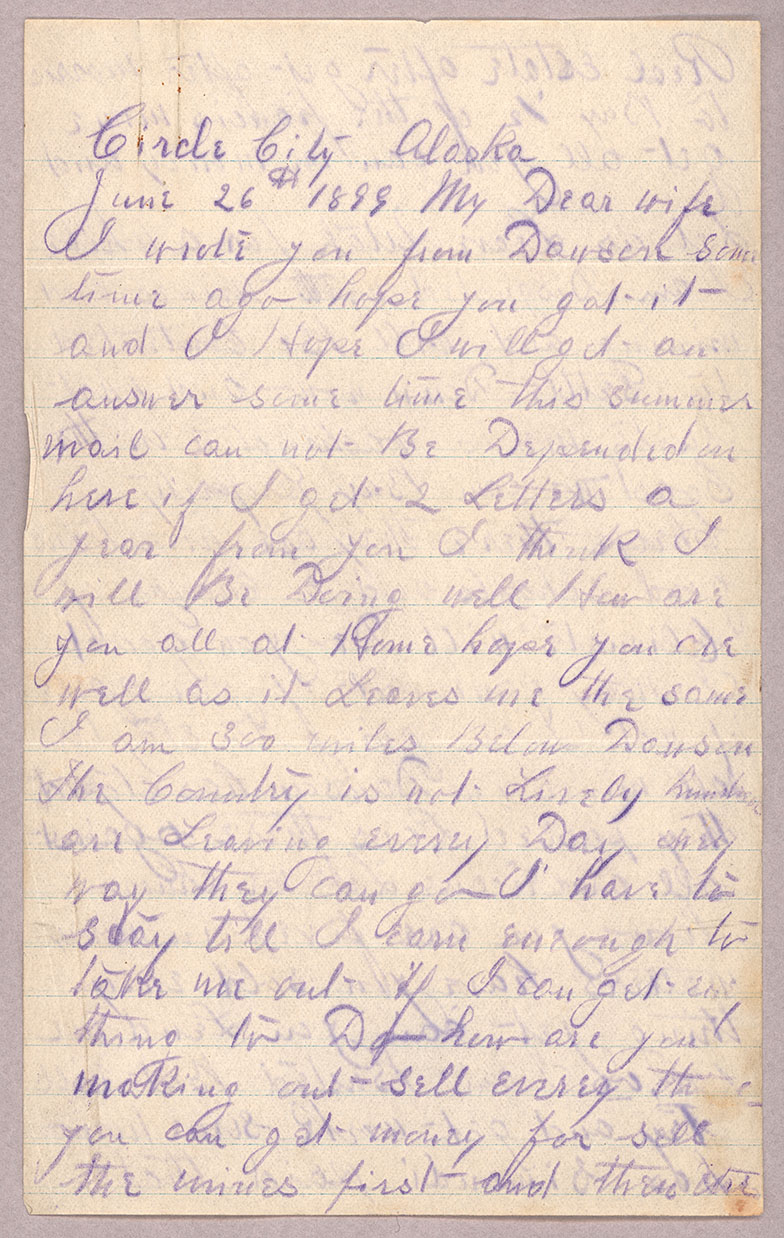 Circle City Alaska
June 26th 1899 My Dear wife
I wrote you from Dawson some
time ago hope you got it
and I Hope I will get an
answer some time this summer
mail can not Be Depended on
here if I get 2 Letters a
year from you I think I
will Be Doing well How are
you all at Home hope you are
well as it Leaves me the same
I am 300 miles Below Dawson
the Country is not Lively
are Leaving every Day eny
way they can go I have to
stay till I earn enough to
take me out if I can get en
thing to Do how are you
making out sell everey
you can get money for sell
the mines first and then the